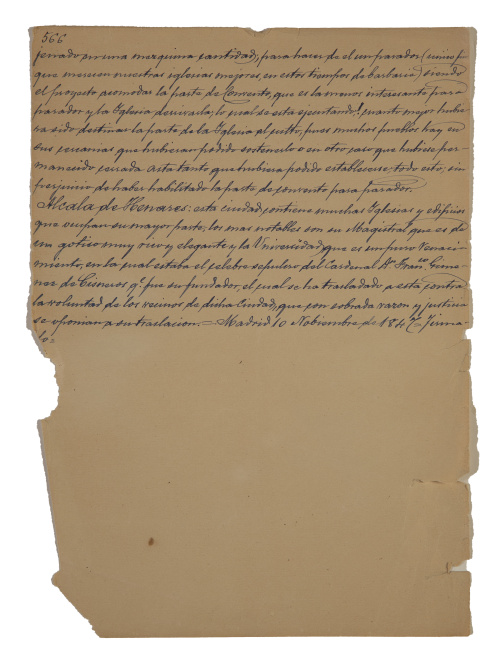 566
jenado en una mezquina cantidad, para hacer de el un parador (unico fin
que merecen nuestras iglesias mejores, en estos tiempos de barbarie) siendo
el proyecto acomodar la parte de Convento, que es la menos interesante para
parador y la Iglesia derrivarla, lo cual se está ejecutando! cuanto mejor hubie-
ra sido destinar la parte de la Iglesia al culto, pues muchos pueblos hay en
sus cercanias que hubieran podido sostenerlo o en otro caso que hubiese per-
manecido cerrada asta tanto que hubiera podido establecerse, todo esto, sin
perjuicio de haber habilitado la parte de convento para parador.
Alcala de Henares: esta ciudad contiene muchas Iglesias y edificios
que ocupan su mayor parte, los mas notables son su Magistral que es de
un gótico muy rico y elegante y la Universidad que es un puro Renaci-
miento, en la cual estaba el celebre sepulcro del Cardenal Dn Franco Gime-
nez de Cisneros q.e fue su fundador, el cual se ha trasladado a esta contra
la voluntad de los vecinos de dicha Ciudad, que con sobrada razon y justicia
se oponian a su traslacion = Madrid 10 Nobiembre de 184